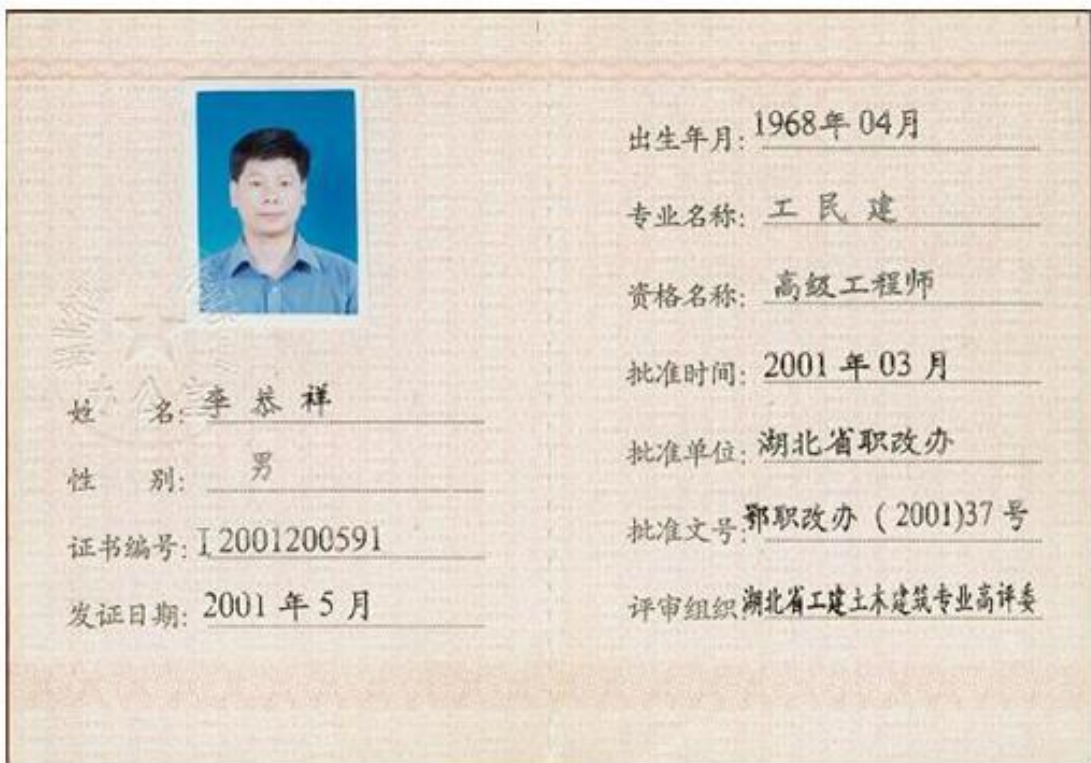 姓 名: 李恭祥
性 别: 男
证书编号: I2001200591
发证日期: 2001年5月
出生年月: 1968年04月
专业名称: 工民建
资格名称: 高级工程师
批准时间: 2001年03月
批准单位: 湖北省职改办
批准文号: 鄂职改办(2001)37号
评审组织: 湖北省工建土木建筑专业高评委